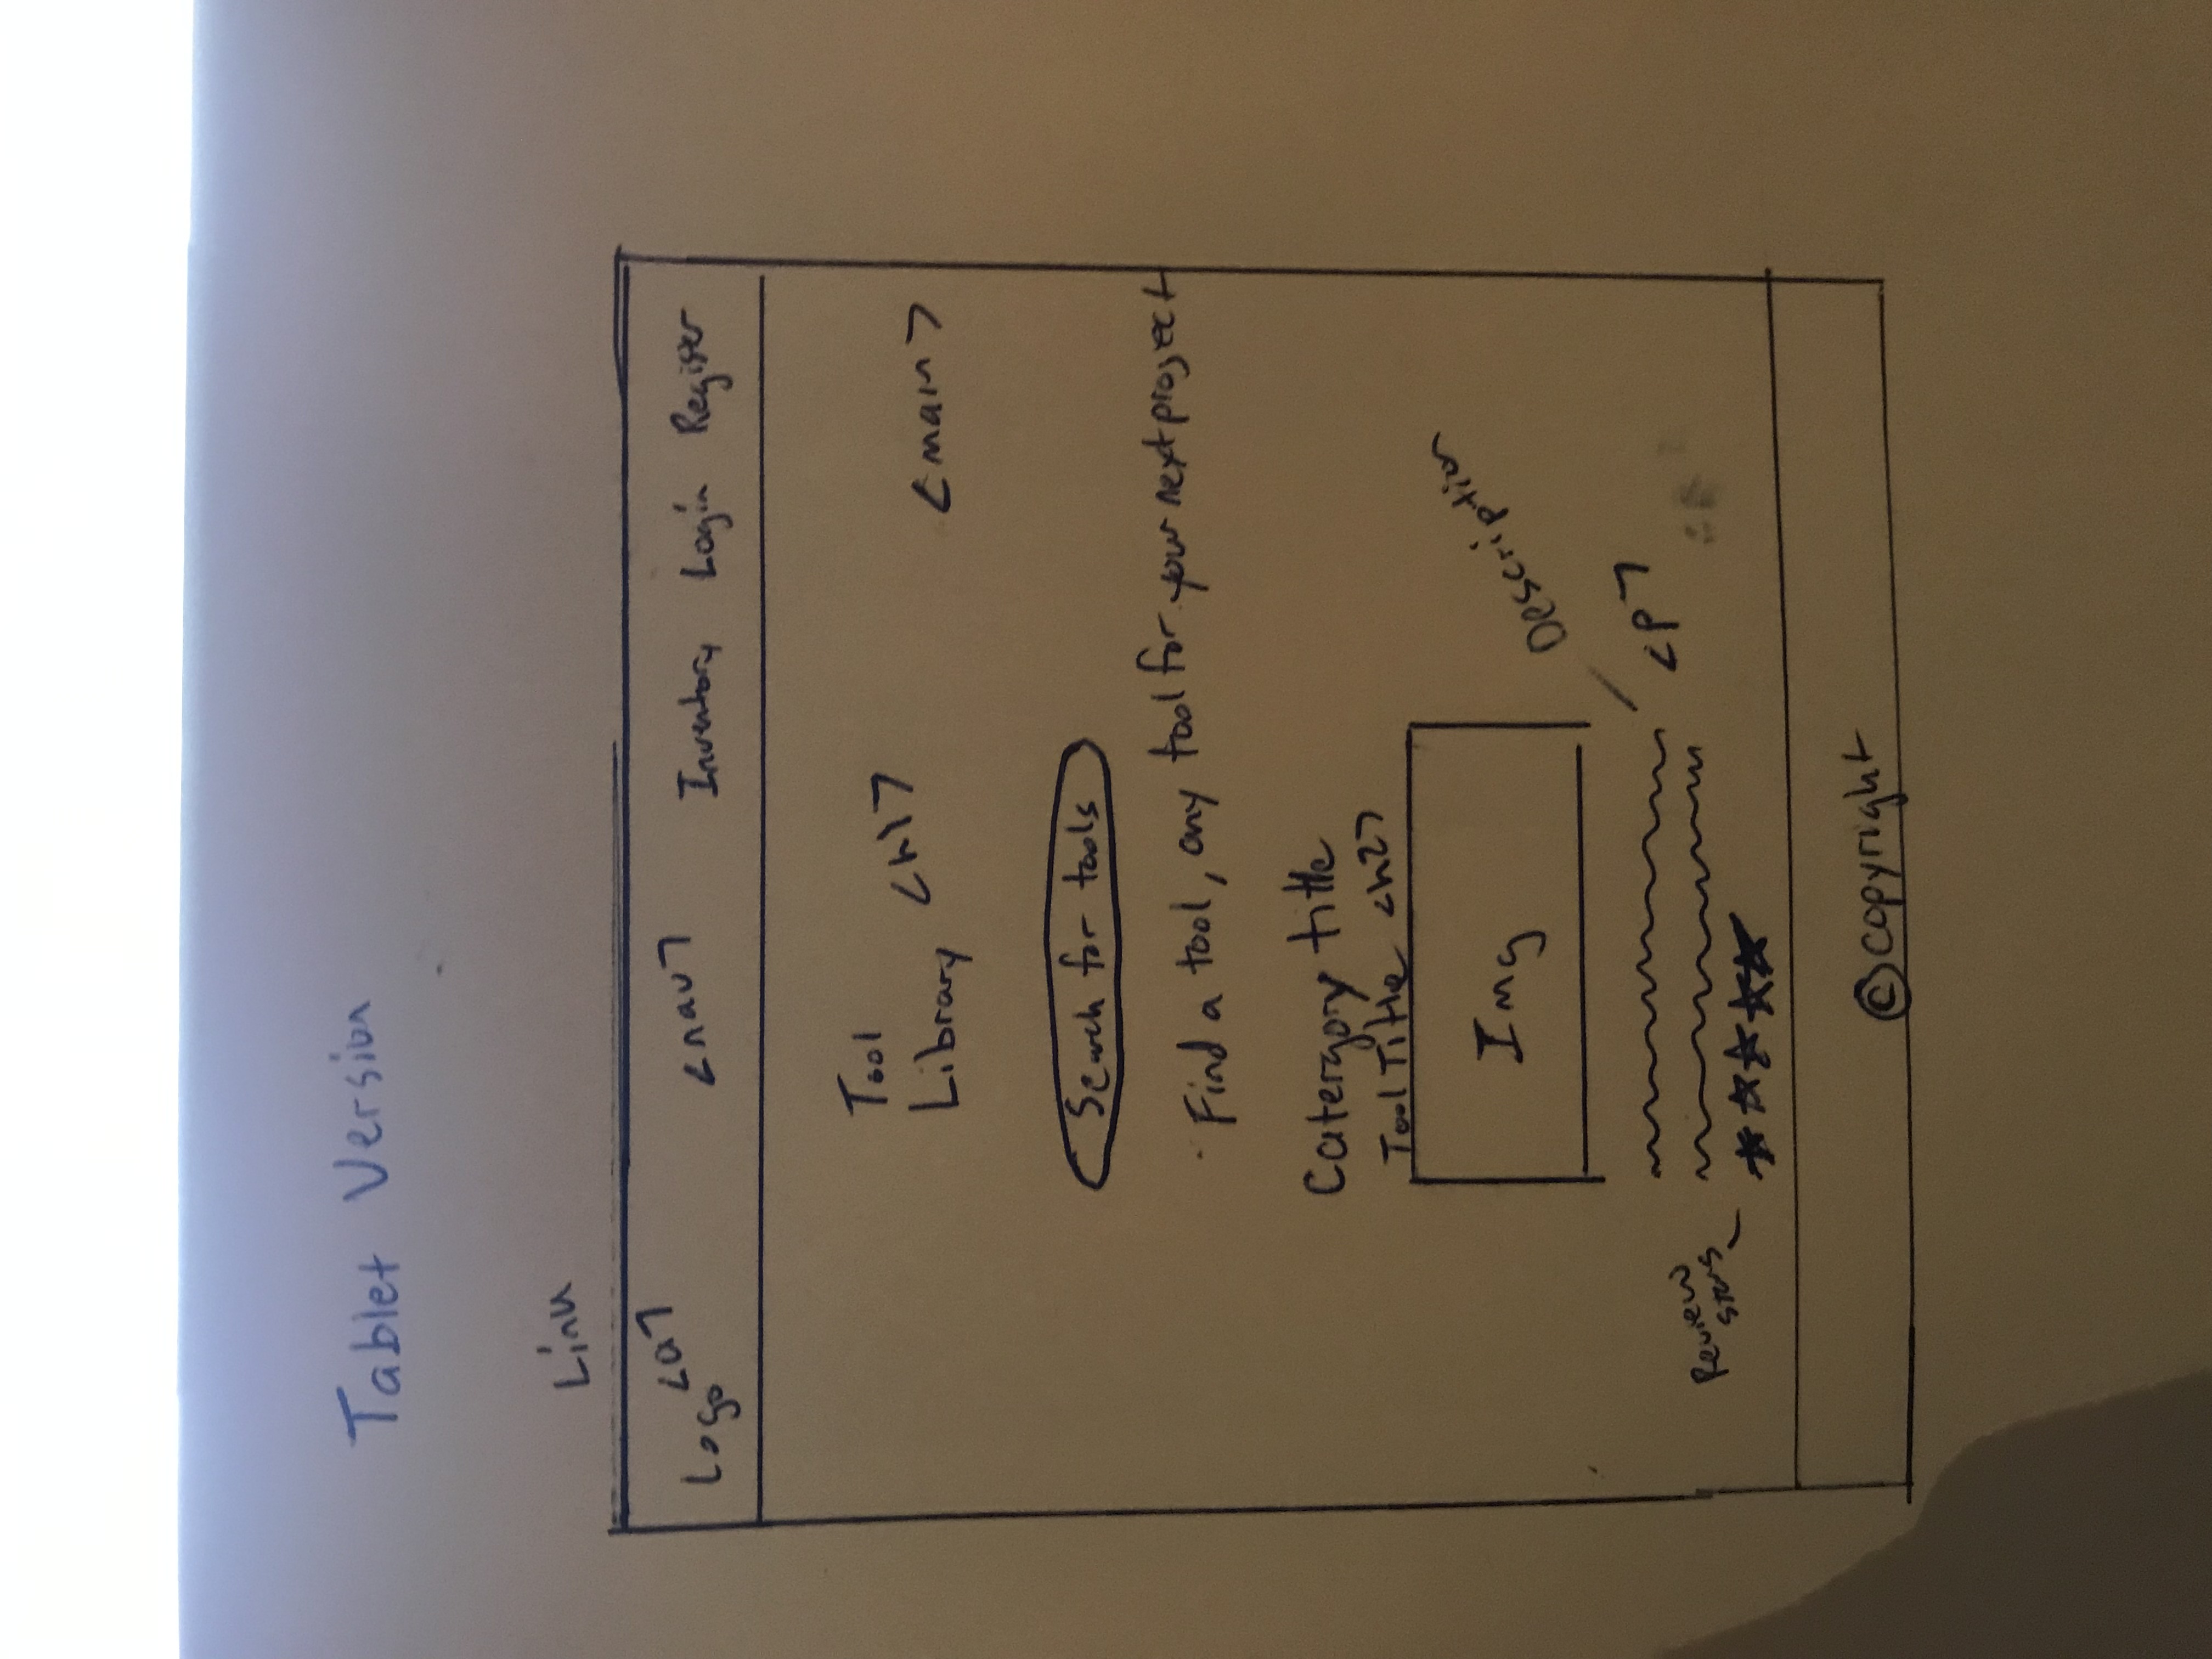 Tablet Version
Link
Logo <a> <nav> Inventory Login Register
Tool
Library <h1>
<main>
Search for tools
Find a tool, any tool for your next project
Catergory title
Tool Title <h2>
Img
Description
<p>
Review
stars
© copyright